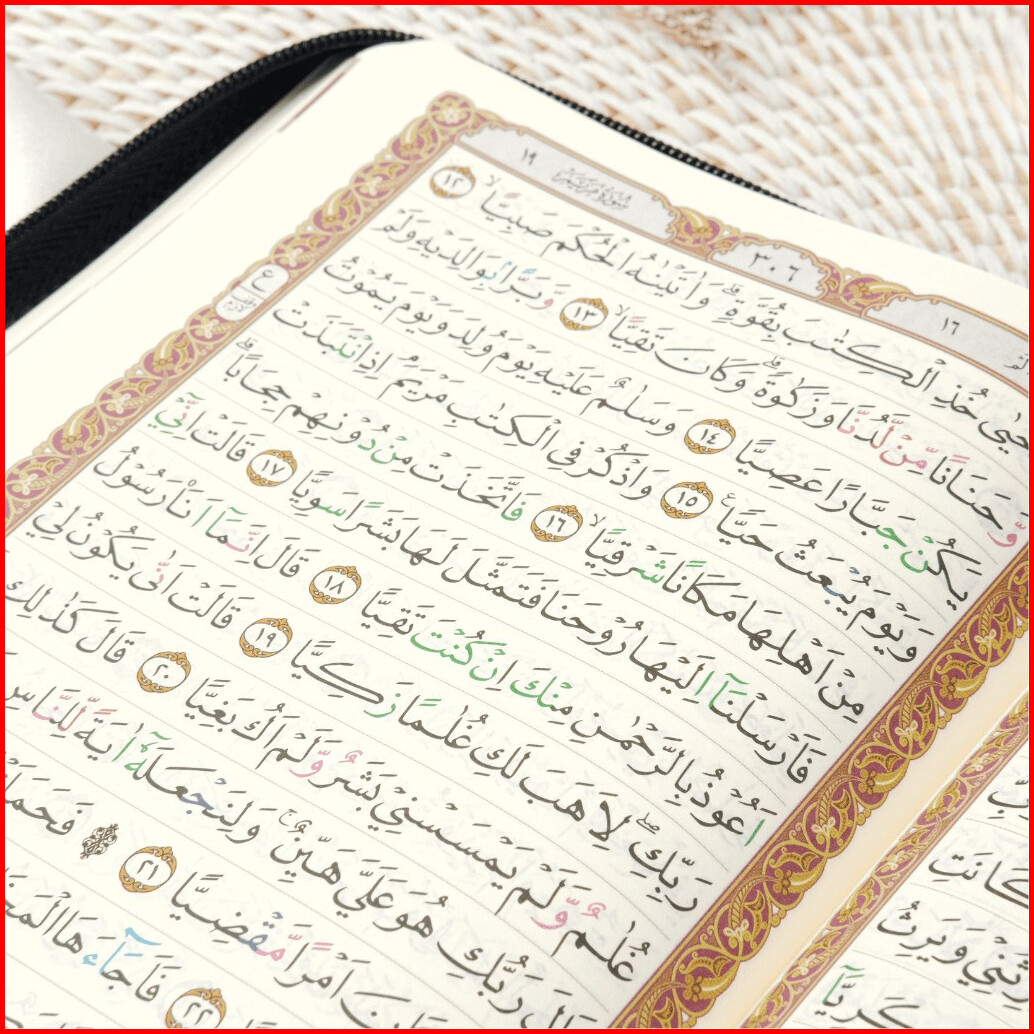 ١٦ ٣٠٦ سورة مريم ١٩
خُذِ الْكِتٰبَ بِقُوَّةٍ ۗ وَاٰتَيْنٰهُ الْحُكْمَ صَبِيًّا ۙ ١٢
وَّحَنَانًا مِّنْ لَّدُنَّا وَزَكٰوةً ۗ وَكَانَ تَقِيًّا ۙ ١٣ وَّبَرًّا بِوَالِدَيْهِ وَلَمْ
يَكُنْ جَبَّارًا عَصِيًّا ١٤ وَسَلٰمٌ عَلَيْهِ يَوْمَ وُلِدَ وَيَوْمَ يَمُوْتُ
وَيَوْمَ يُبْعَثُ حَيًّا ࣖ ١٥ وَاذْكُرْ فِى الْكِتٰبِ مَرْيَمَۘ اِذِ انْتَبَذَتْ
مِنْ اَهْلِهَا مَكَانًا شَرْقِيًّا ۙ ١٦ فَاتَّخَذَتْ مِنْ دُوْنِهِمْ حِجَابًا ۗ
فَاَرْسَلْنَآ اِلَيْهَا رُوْحَنَا فَتَمَثَّلَ لَهَا بَشَرًا سَوِيًّا ١٧ قَالَتْ اِنِّيْٓ
اَعُوْذُ بِالرَّحْمٰنِ مِنْكَ اِنْ كُنْتَ تَقِيًّا ١٨ قَالَ اِنَّمَآ اَنَا۠ رَسُوْلُ
رَبِّكِ ۖ لِاَهَبَ لَكِ غُلٰمًا زَكِيًّا ١٩ قَالَتْ اَنّٰى يَكُوْنُ لِيْ
غُلٰمٌ وَّلَمْ يَمْسَسْنِيْ بَشَرٌ وَّلَمْ اَكُ بَغِيًّا ٢٠ قَالَ كَذٰلِكِ
رَبُّكِ هُوَ عَلَيَّ هَيِّنٌ ۚ وَلِنَجْعَلَهٗٓ اٰيَةً لِّلنَّاسِ
اَمْرًا مَّقْضِيًّا ٢١ ۞
فَاَجَاۤءَهَا ٢٢
كَانَتِ
وَيَرِثُ